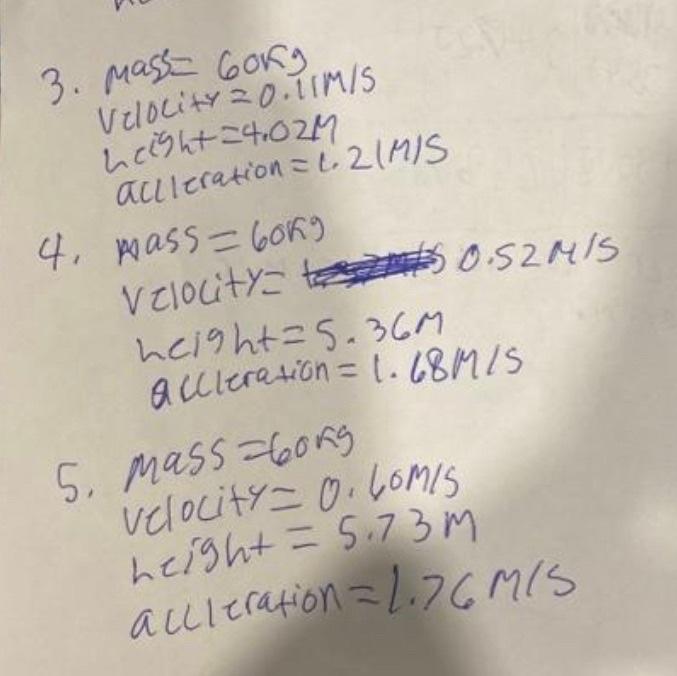 3. Mass= 60Kg
Velocity=0.11M/S
height=4.02M
accleration=1.21M/S
4. Mass=60Kg
Velocity= 0.52M/S
height=5.36M
accleration=1.68M/S
5. Mass=60Kg
Velocity= 0.60M/S
height=5.73M
accleration=1.76M/S